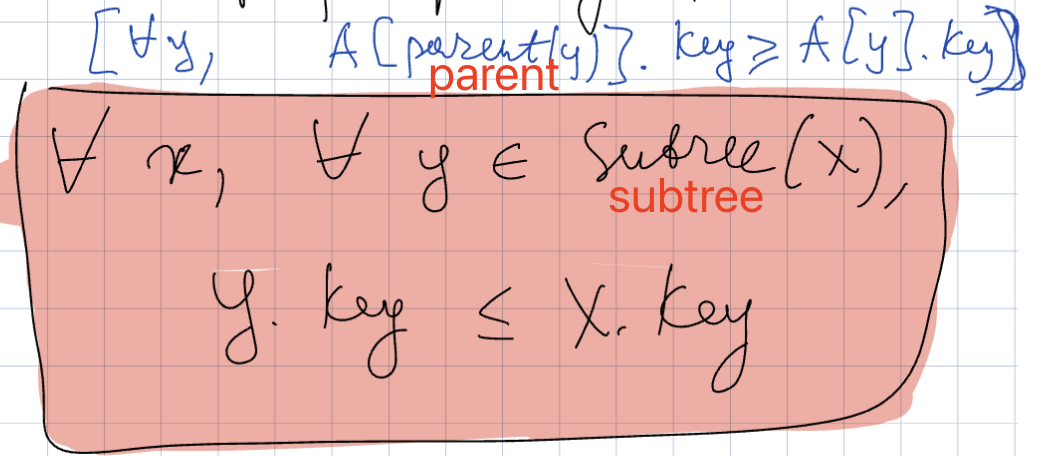 [∀y, A[parent(y)].key ≥ A[y].key]
parent
∀ x, ∀ y ∈ Subtree(x),
subtree
y.key ≤ x.key